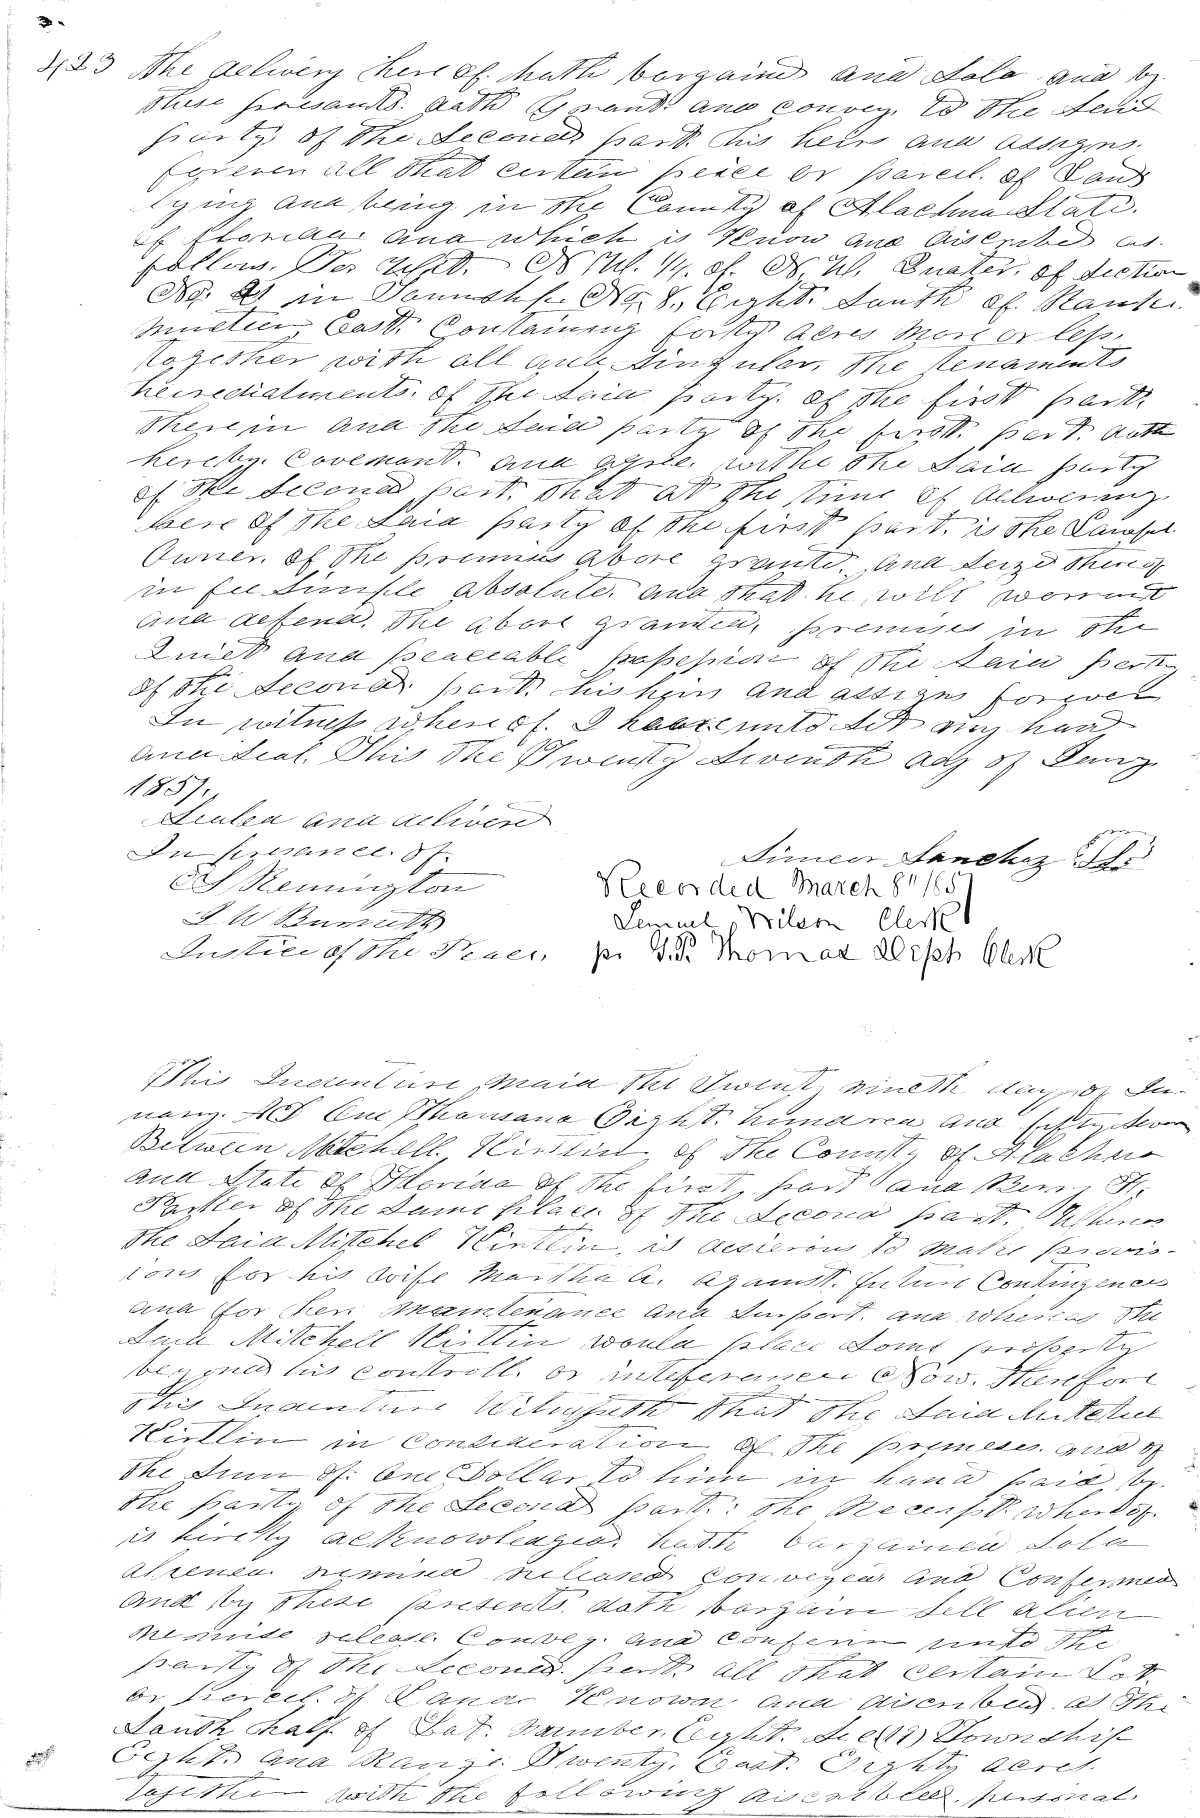 423 The delivery here of. hath bargained and Sold and by
these presants. doth Grant and convey, to the Said
party of the Second part his heirs and assigns.
forever all that certain peice or parcel. of Land
lying and being in the County of Alachua State.
of Florida. and which is Know and discribed as.
follows. To Wit. N W. 1/4. of. N. W. Quater. of Section
No. 21 in Township No. 8. Eight. South of. Range.
nineteen East. Containing forty acres more or less.
together with all and Singular, the tenaments
heirediatments. of the Said party. of the first part.
therein and the Said party of the first. part. doth
hereby. covenant. and agree. withe the Said party
of the Second part. that at the time of delivering
here of the Said party of the first part. is the Lawful
Owner. of the premises above grante. and Seized thereof
in fee Simple absolute. and that he will warrant
and defend. the above granted, premises in the
Quiet and peaceable possession of the Said party
of the Second. part. his heirs and assigns forever
In witness where of. I have unto Set my hand
and Seal. This the Twenty Seventh day of Jany
1857.
Sealed and delivered
In presance. of.
Simeon Sanchez
S Remington
Recorded March 8" 1857
J W Burnett
Lemuel Wilson Clerk
Justice of the Peace.
pr J.P. Thomas Deph Clerk
This Indenture maid the Twenty nineth day of Ja-
nuary. AD One Thousand Eight. hundred and fifty Seven
Between Mitchell Kirtlin of the County of Alachua
and State of Florida of the first part and Berry H.
Parker of the Same place. of the Second part. Whereas
the Said Mitchel Kirtlin. is desierous to make provis-
ions for his wife Martha A. against. future Contingences
and for her maintenance and Suport. and whereas the
Said Mitchell Kirtlin would place Some property
beyond his controll. or inteferance Now. therefore
this Indenture Witnesseth that the Said Mitchel
Kirtlin in consideration of the premeses. and of
the Sum of. One Dollar to him in hand paid by.
the party of the Second part.: the Receipt. whereof.
is hirely acknowledged. hath bargained Sold
aliened. remised released conveyed and Confermed
and by these presents. doth bargain Sell alien
remise release. Convey. and conferm unto the
party of the Second. part. all that certain Lot
or parcel. of Land. Known and discribed. as the
South half of Lot. number. Eight. Sec (19) Township
Eight. and Range. Twenty. East. Eighty acres.
Together with the following discribed. personal.